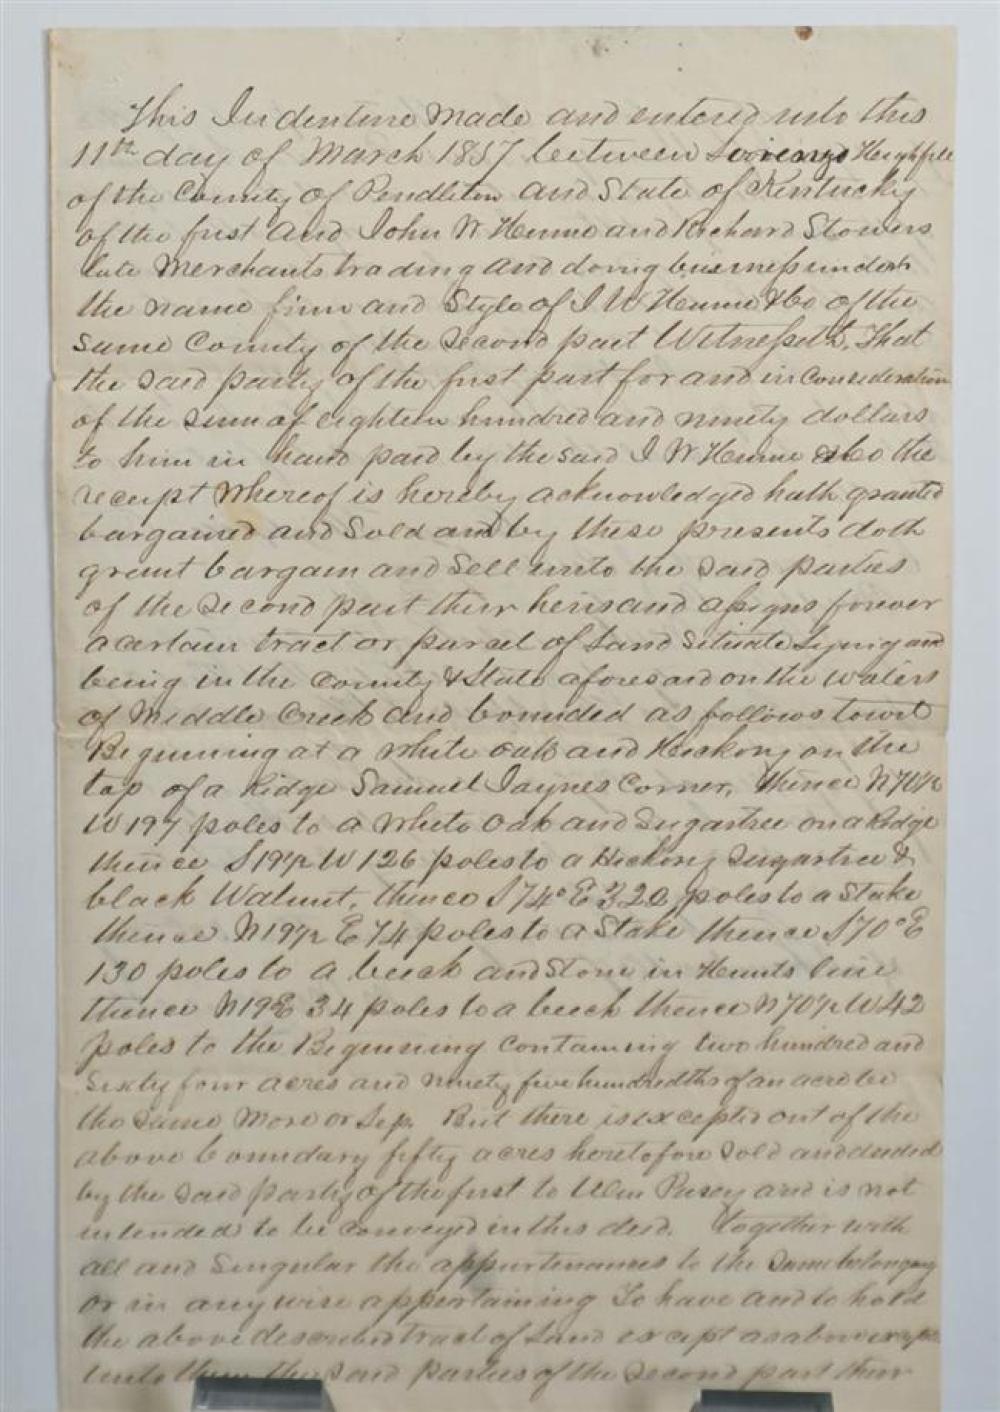 This Indenture made and entered into this
11th day of March 1857 between Lorenzo
of the County of Pendleton and State of Kentucky
of the first and John W Hume and Richard Stowers
late Merchants trading and doing business under
the name firm and Style of J W Hume & Co of the
same County of the Second part Witnesseth, That
the said party of the first part for and in Consideration
of the sum of eighteen hundred and ninety dollars
to him in hand paid by the said J W Hume & Co the
receipt whereof is hereby acknowledged hath granted
bargained and Sold and by these presents doth
grant bargain and Sell unto the said parties
of the Second part their heirs and assigns forever
a certain tract or parcel of Land Situate Lying and
being in the County & State aforesaid on the waters
of Middle Creek and bounded as follows towit
Beginning at a white oak and Hickory on the
top of a Ridge Samuel Jaynes Corner, thence N70½
W 197 poles to a white oak and Sugartree on a Ridge
thence S19½ W 126 poles to a Hickory Sugartree &
black Walnut, thence S74° E 320 poles to a Stake
thence N19½ E 74 poles to a Stake thence S70° E
130 poles to a beech and Stone in Hunts line
thence N19 E 34 poles to a beech thence N70½ W 42
poles to the Beginning Containing two hundred and
Sixty four acres and ninety five hundredths of an acre be
the same more or less. But there is excepted out of the
above boundary fifty acres heretofore Sold and deeded
by the said party of the first to and is not
intended to be conveyed in this deed. Together with
all and Singular the appurtenances to the same belonging
or in anywise appertaining To have and to hold
the above described tract of Land except as above
unto them the said parties of the Second part their